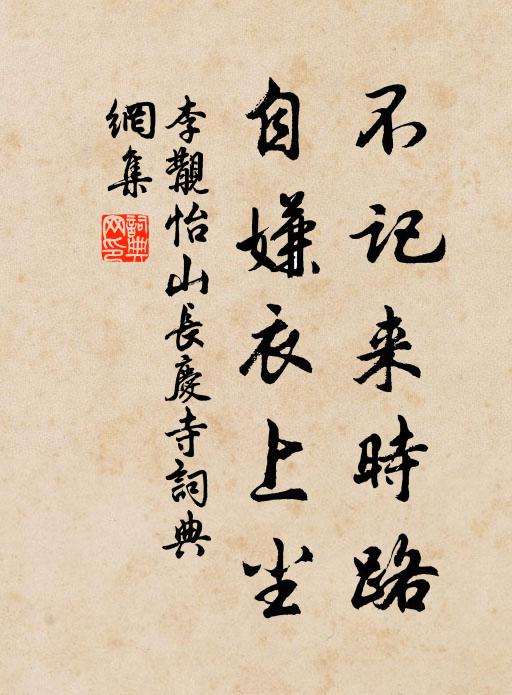 不记来時路
自嫌衣上尘
李觀怡山長慶寺詞典
網集
詞典网印